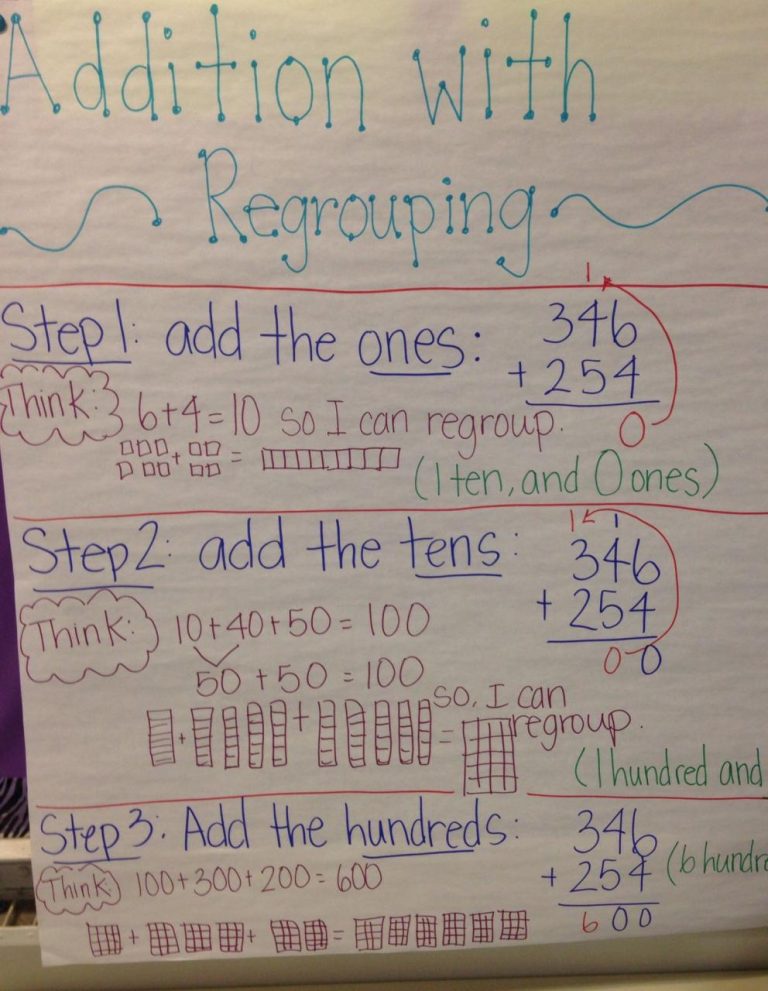 Addition with
Regrouping
Step 1: add the ones:
1
346
+ 254
0
Think: 6+4=10 so I can regroup.
+ =
(1 ten, and 0 ones)
Step 2: add the tens:
1 1
346
+ 254
00
Think: 10+40+50=100
50 + 50 = 100
so, I can
regroup.
+ + =
(1 hundred and
Step 3: Add the hundreds:
346
+ 254
600
(6 hundre
Think: 100+300+200=600
+ + =